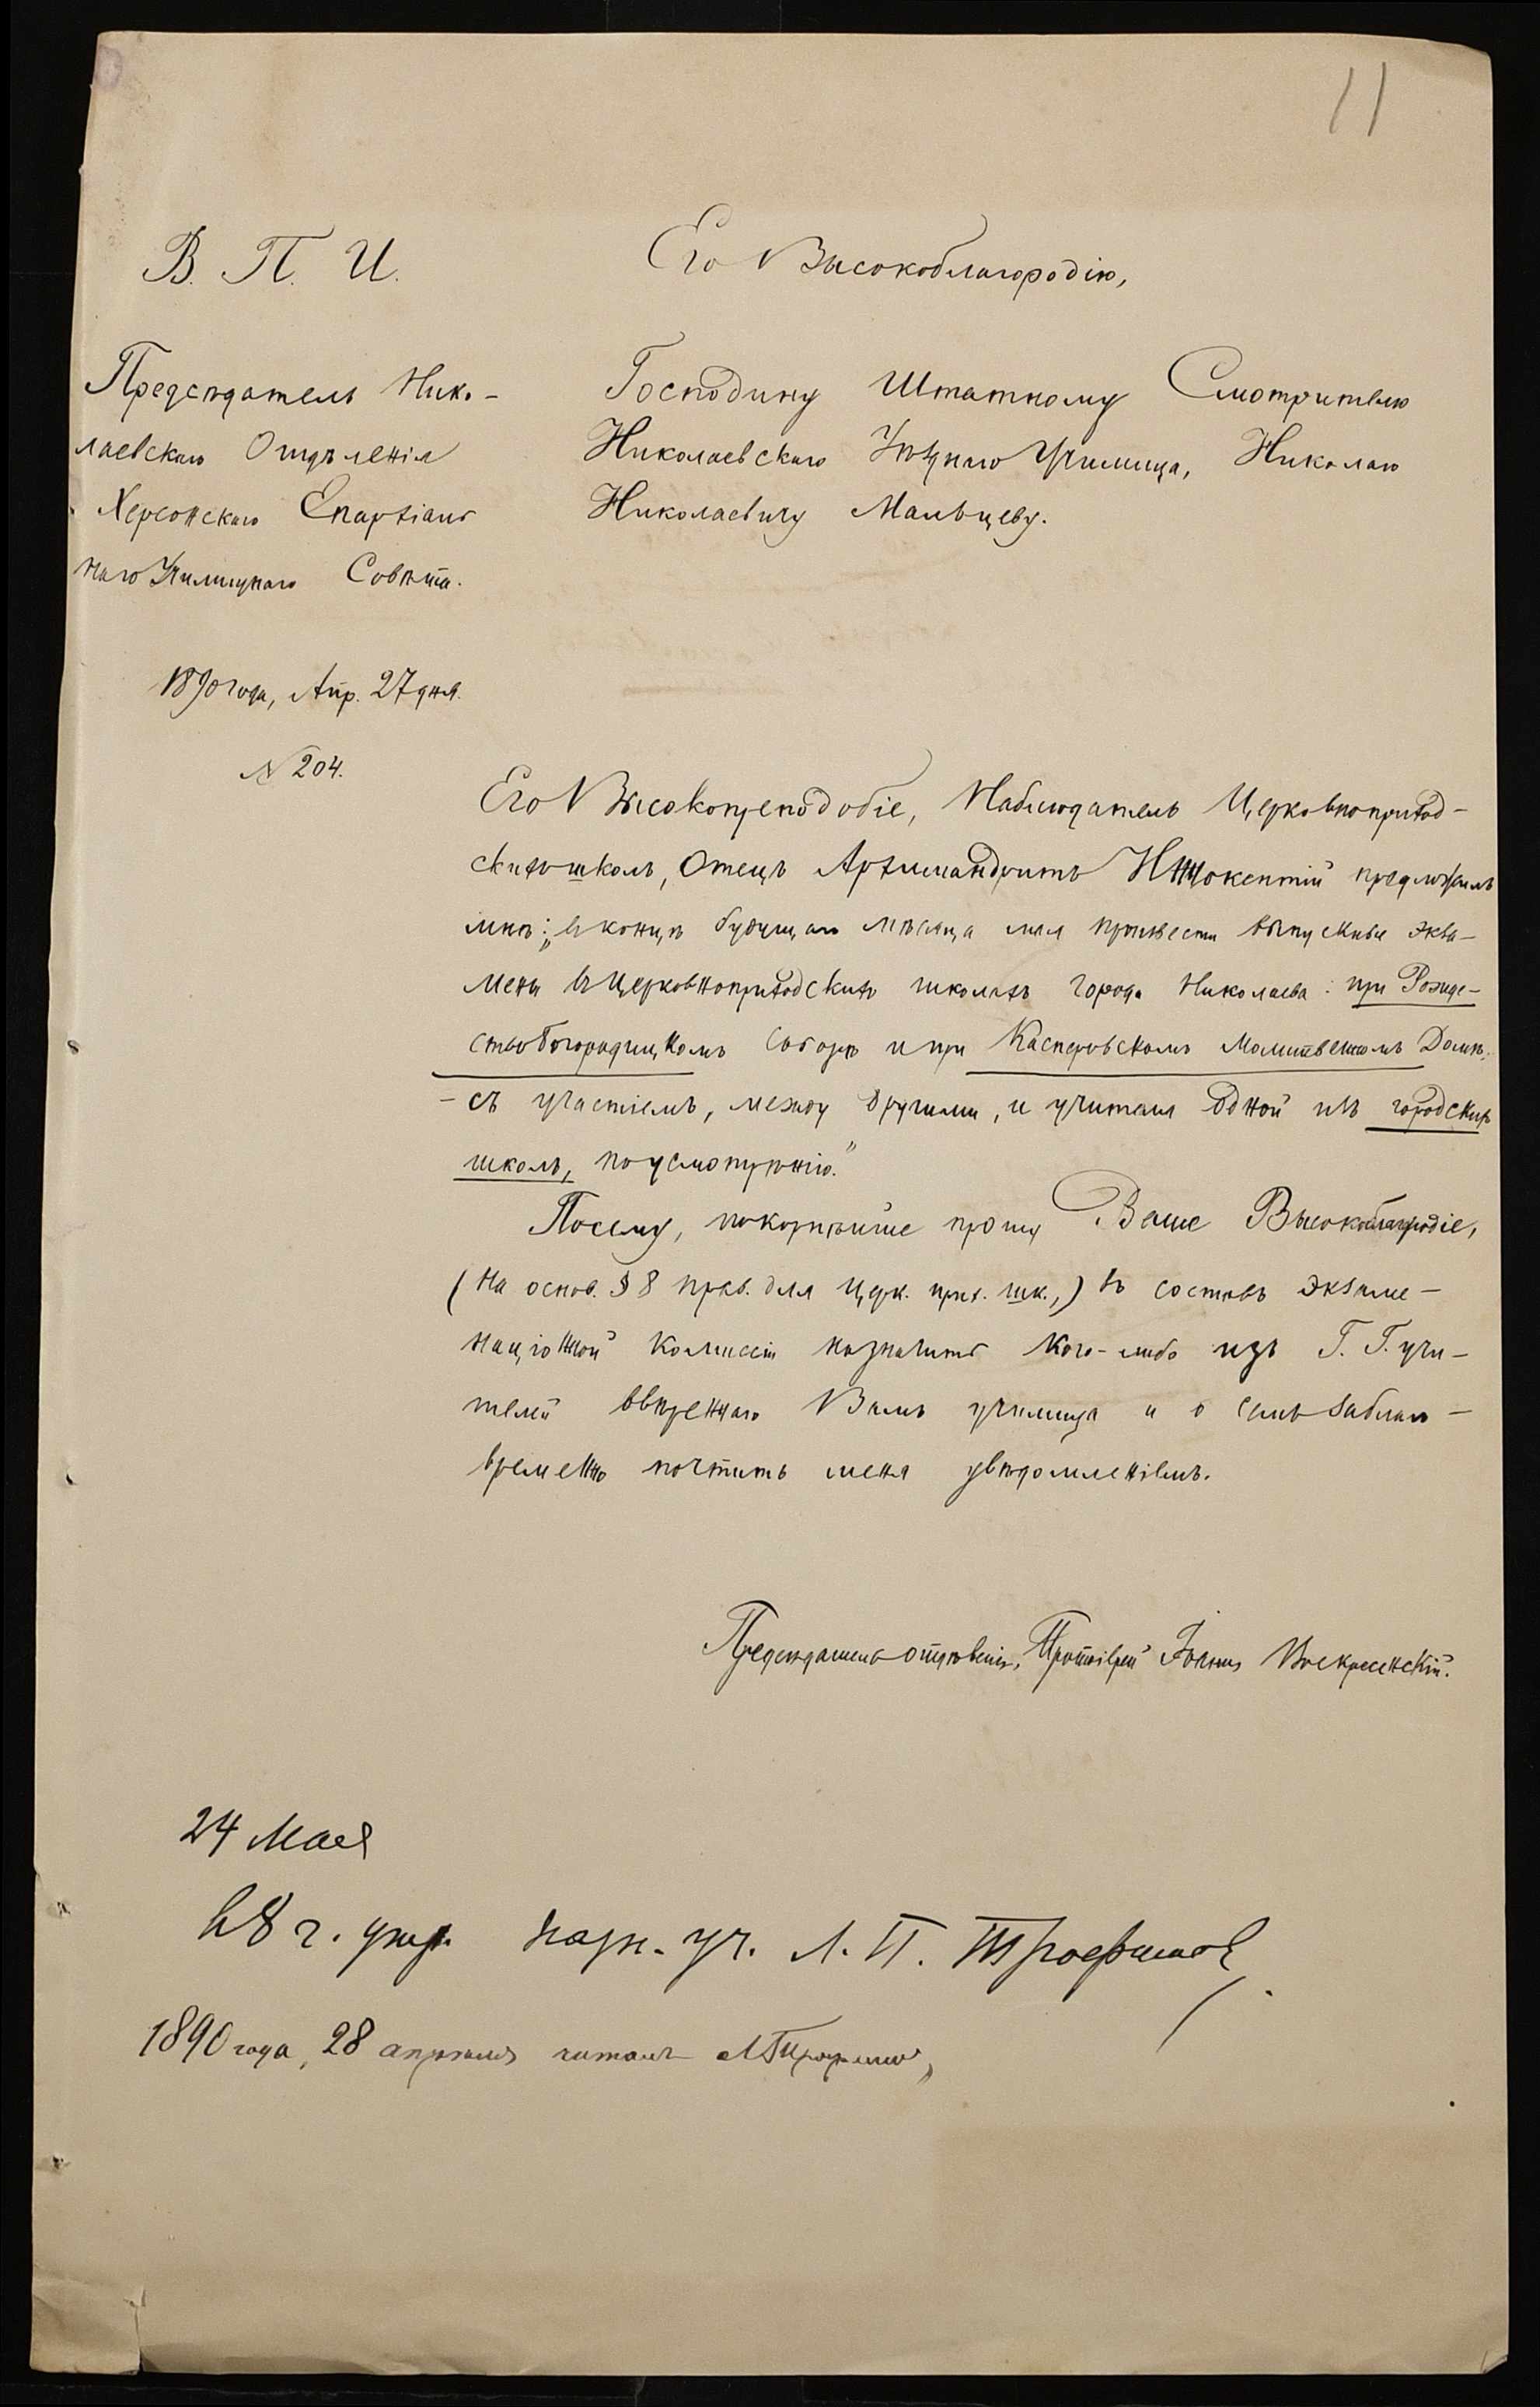 11
В. П. И.
Предсѣдатель Нико-
лаевскаго Отдѣленія
Херсонскаго Епархіаль
наго Училищнаго Совѣта.
1890 года, Апр. 27 дня.
№ 204.
Его Высокоблагородію,
Господину Штатному Смотрителю
Николаевскаго Уѣзднаго Училища, Николаю
Николаевичу Мальцеву.
Его Высокопреподобіе, Наблюдатель Церковноприход-
скихъ школъ, Отецъ Архимандритъ Иннокентій предложилъ
мнѣ: „въ концѣ будущаго мѣсяца мая произвести выпускные экза-
мены въ церковноприходскихъ школахъ города Николаева: при Рожде-
ствобогородицкомъ соборѣ и при Касперовскомъ Молитвенномъ Домѣ,
- съ участіемъ, между другими, и учителя одной изъ городскихъ
школъ, по усмотрѣнію."
Посему, покорнѣйше прошу Ваше Высокоблагородіе,
(на основ. § 8 прав. для церк. прих. шк.,) въ составъ экзаме-
націонной комиссіи назначить кого-либо изъ Г. Г. учи-
телей ввѣреннаго Вамъ училища и о семъ заблаго-
временно почтить меня увѣдомленіемъ.
Предсѣдатель отдѣленія, Протоіерей Іоаннъ Воскресенскій.
24 Мая
въ 8 ч. утр. нар. уч. Л. П. Трофимов
1890 года, 28 апрѣля читалъ Л Трофимов